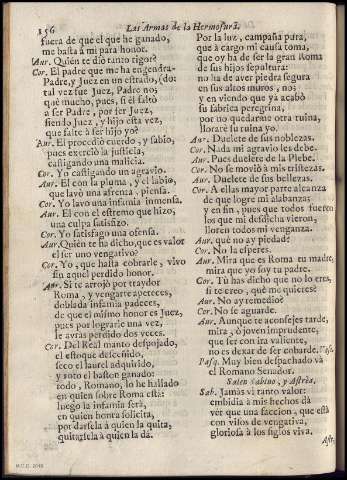 156
Las Armas de la Hermosura.
fuera de que el que he ganado,
me basta à mi para honor.
Aur. Quièn te diò tanto rigor?
Cor. El padre que me ha engendra-
Padre, y Juez en un estrado, (do:
tal vez fue Juez, Padre no;
què mucho, pues, si èl faltò
à ser Padre, por ser Juez,
siendo Juez, y hijo esta vez,
que falte à ser hijo yo?
Aur. El procediò cuerdo, y sabio,
pues exerciò la justicia,
castigando una malicia.
Cor. Yo castigando un agravio.
Aur. El con la pluma, y el labio,
que lavò una afrenta, piensa.
Cor. Yo lavo una infamia inmensa.
Aur. El con el estremo que hizo,
una culpa satisfizo.
Cor. Yo satisfago una ofensa.
Aur. Quièn te ha dicho, que es valor
el ser uno vengativo?
Cor. Yo, que hasta cobrarle, vivo
sin aquel perdido honor.
Aur. Si te arrojò por traydor
Roma, y vengarte apeteces,
doblada infamia padeces,
de que el mismo honor es Juez,
pues por lograrle una vez,
le avràs perdido dos veces.
Cor. Del Real manto despojado,
el estoque desceñido,
seco el laurel adquirido,
y roto el baston ganado:
todo, Romano, lo he hallado
en quien sobre Roma està:
luego la infamia serà,
en quien honra solicita,
por darsela à quien la quita,
quitarsela à quien la dà.
Por la luz, campaña pura,
que à cargo mi causa toma,
que oy ha de ser la gran Roma
de sus hijos sepultura:
no ha de aver piedra segura
en sus altos muros, no;
y en viendo que ya acabò
su fabrica peregrina,
por no quedarme otra ruina,
llorarè su ruina yo.
Aur. Duelete de sus noblezas.
Cor. Nada mi agravio les debe.
Aur. Pues duelete de la Plebe.
Cor. No se moviò à mis tristezas.
Aur. Duelete de sus bellezas.
Cor. A ellas mayor parte alcanza
de que logre mi alabanza;
y en fin, pues que todos fueron
los que mi desdicha vieron,
lloren todos mi venganza.
Aur. què no ay piedad?
Cor. No la esperes.
Aur. Mira que es Roma tu madre,
mira que yo soy tu padre.
Cor. Tù has dicho que no lo eres,
si te creo, què me quieres?
Aur. No ay remedio?
Cor. No se aguarde.
Aur. Aunque te aconsejes tarde,
mira, ò joven imprudente,
que ser con ira valiente,
no es dexar de ser cobarde. Vase.
Pasq. Muy bien despachado và
el Romano Senador.
Salen Sabino, y Astrèa.
Sab. Jamàs vi tanto valor:
embidia à mis hechos dà
vèr que una faccion, que està
con visos de vengativa,
gloriosa à los siglos viva.
Astr.